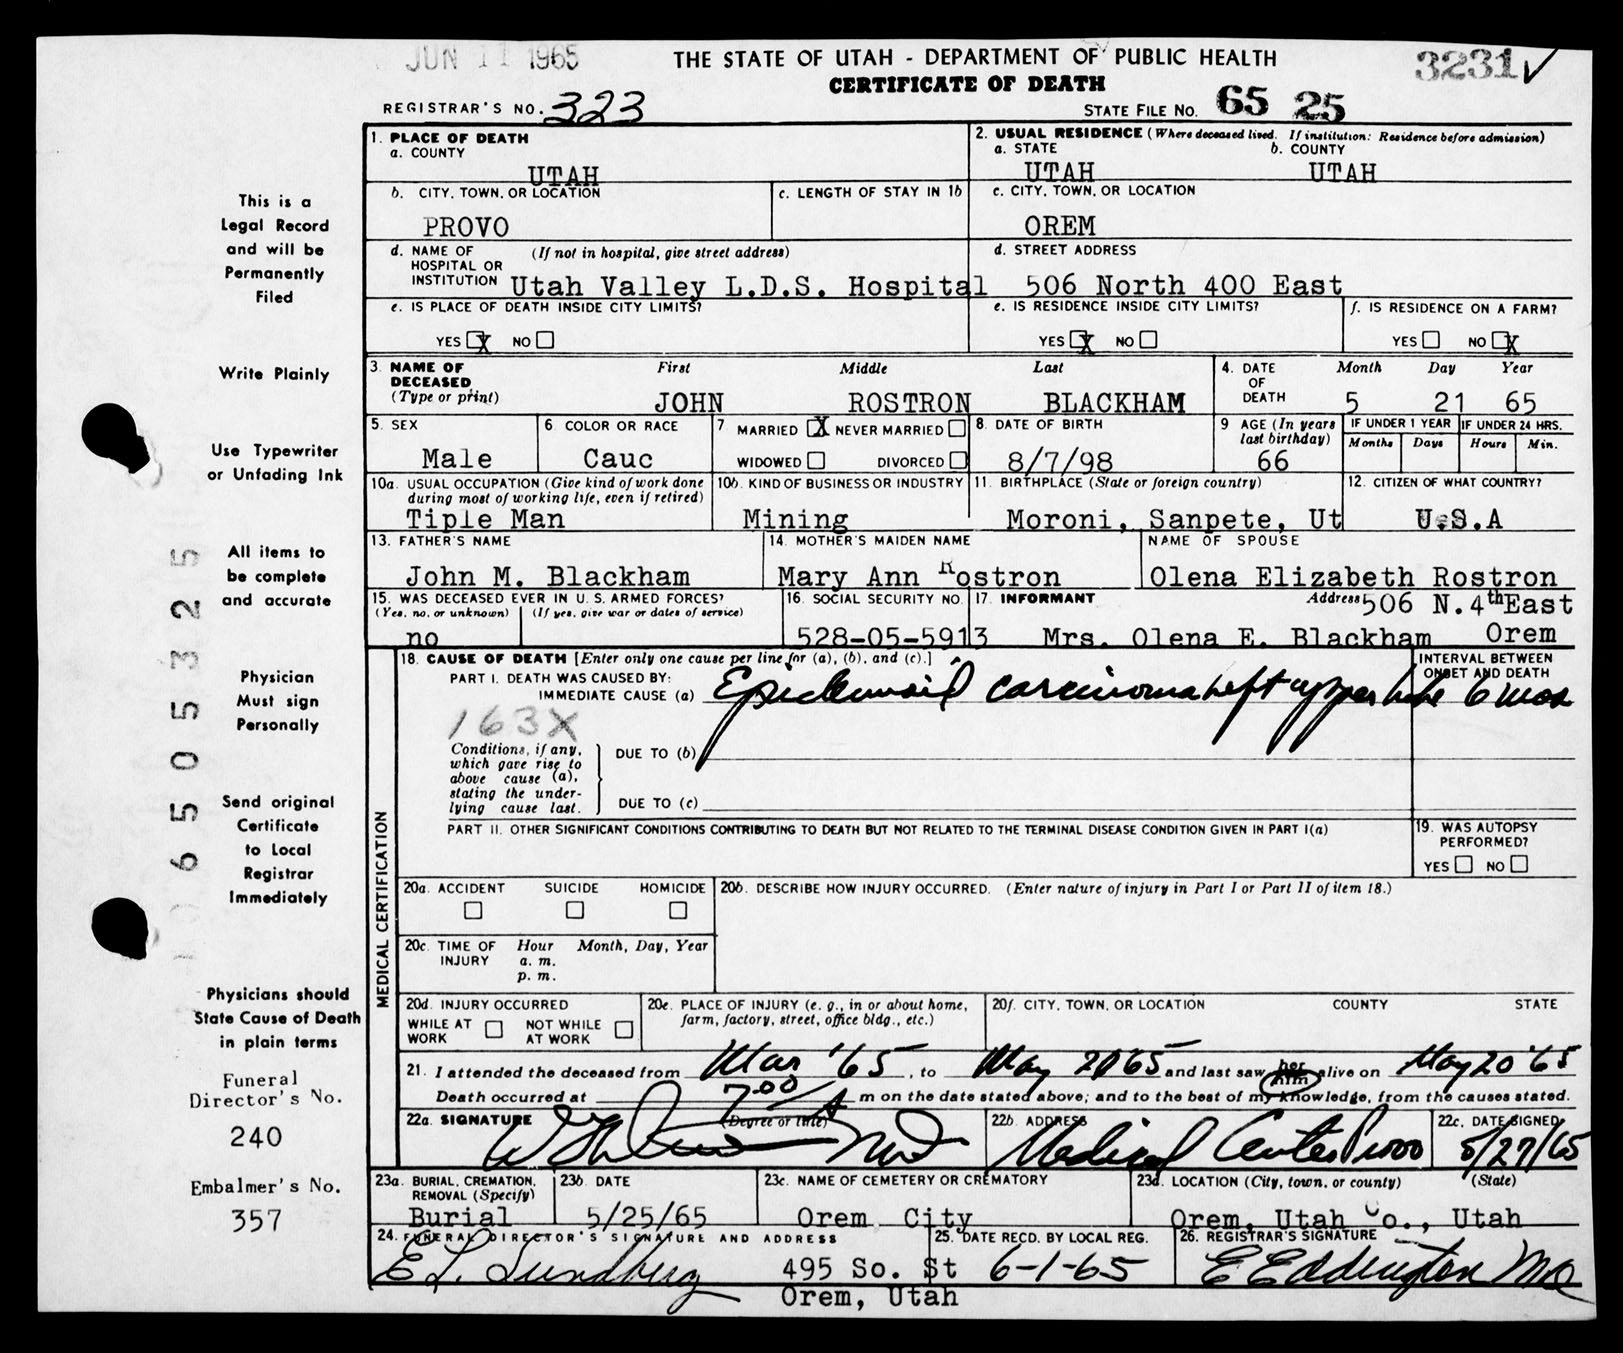 JUN 11 1965
THE STATE OF UTAH - DEPARTMENT OF PUBLIC HEALTH
3231 ✓
CERTIFICATE OF DEATH
REGISTRAR'S NO. 323
STATE FILE NO. 65 25
1. PLACE OF DEATH
a. COUNTY
UTAH
2. USUAL RESIDENCE (Where deceased lived. If institution: Residence before admission)
a. STATE b. COUNTY
UTAH UTAH
b. CITY, TOWN, OR LOCATION c. LENGTH OF STAY IN 1b
PROVO
c. CITY, TOWN, OR LOCATION
OREM
d. NAME OF (If not in hospital, give street address)
HOSPITAL OR
INSTITUTION Utah Valley L.D.S. Hospital
d. STREET ADDRESS
506 North 400 East
e. IS PLACE OF DEATH INSIDE CITY LIMITS?
YES X NO
e. IS RESIDENCE INSIDE CITY LIMITS?
YES X NO
f. IS RESIDENCE ON A FARM?
YES NO X
3. NAME OF First Middle Last
DECEASED
(Type or print) JOHN ROSTRON BLACKHAM
4. DATE Month Day Year
OF
DEATH 5 21 65
5. SEX
Male
6. COLOR OR RACE
Cauc
7 MARRIED X NEVER MARRIED
WIDOWED DIVORCED
8. DATE OF BIRTH
8/7/98
9 AGE (In years
last birthday)
66
IF UNDER 1 YEAR IF UNDER 24 HRS.
Months Days Hours Min.
10a. USUAL OCCUPATION (Give kind of work done
during most of working life, even if retired)
Tiple Man
10b. KIND OF BUSINESS OR INDUSTRY
Mining
11. BIRTHPLACE (State or foreign country)
Moroni, Sanpete, Ut
12. CITIZEN OF WHAT COUNTRY?
U.S.A
13. FATHER'S NAME
John M. Blackham
14. MOTHER'S MAIDEN NAME
Mary Ann Rostron
NAME OF SPOUSE
Olena Elizabeth Rostron
15. WAS DECEASED EVER IN U. S. ARMED FORCES?
(Yes, no, or unknown) (If yes, give war or dates of service)
no
16. SOCIAL SECURITY NO.
528-05-5913
17. INFORMANT Address 506 N. 4th East
Mrs. Olena E. Blackham Orem
18. CAUSE OF DEATH [Enter only one cause per line for (a), (b), and (c).]
INTERVAL BETWEEN
ONSET AND DEATH
PART I. DEATH WAS CAUSED BY:
IMMEDIATE CAUSE (a) Epidermoid carcinoma left upper lobe 6 mos
163X
Conditions, if any,
which gave rise to
above cause (a),
stating the under-
lying cause last.
DUE TO (b)
DUE TO (c)
PART II. OTHER SIGNIFICANT CONDITIONS CONTRIBUTING TO DEATH BUT NOT RELATED TO THE TERMINAL DISEASE CONDITION GIVEN IN PART I(a)
19. WAS AUTOPSY
PERFORMED?
YES NO
MEDICAL CERTIFICATION
20a. ACCIDENT SUICIDE HOMICIDE
20b. DESCRIBE HOW INJURY OCCURRED. (Enter nature of injury in Part I or Part II of item 18.)
20c. TIME OF Hour Month, Day, Year
INJURY a. m.
p. m.
20d. INJURY OCCURRED
WHILE AT NOT WHILE
WORK AT WORK
20e. PLACE OF INJURY (e. g., in or about home,
farm, factory, street, office bldg., etc.)
20f. CITY, TOWN, OR LOCATION COUNTY STATE
21. I attended the deceased from Mar '65, to May 20 65 and last saw her him alive on May 20 '65
Death occurred at 7:00 A m on the date stated above; and to the best of my knowledge, from the causes stated.
22a. SIGNATURE (Degree or title)
MD
22b. ADDRESS
Medical Center Provo
22c. DATE SIGNED
5/27/65
23a. BURIAL, CREMATION,
REMOVAL (Specify)
Burial
23b. DATE
5/25/65
23c. NAME OF CEMETERY OR CREMATORY
Orem City
23d. LOCATION (City, town, or county) (State)
Orem, Utah Co., Utah
24. FUNERAL DIRECTOR'S SIGNATURE AND ADDRESS
E L. Sundberg 495 So. St
Orem, Utah
25. DATE RECD. BY LOCAL REG.
6-1-65
26. REGISTRAR'S SIGNATURE
E Eddington MD
This is a
Legal Record
and will be
Permanently
Filed
Write Plainly
Use Typewriter
or Unfading Ink
All items to
be complete
and accurate
Physician
Must sign
Personally
Send original
Certificate
to Local
Registrar
Immediately
Physicians should
State Cause of Death
in plain terms
Funeral
Director's No.
240
Embalmer's No.
357
65053325